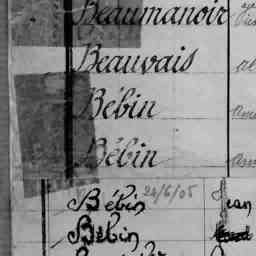 Beaumanoir
Beauvais al
Bébin
Bébin
Bébin 24/6/05 Jean
Bébin